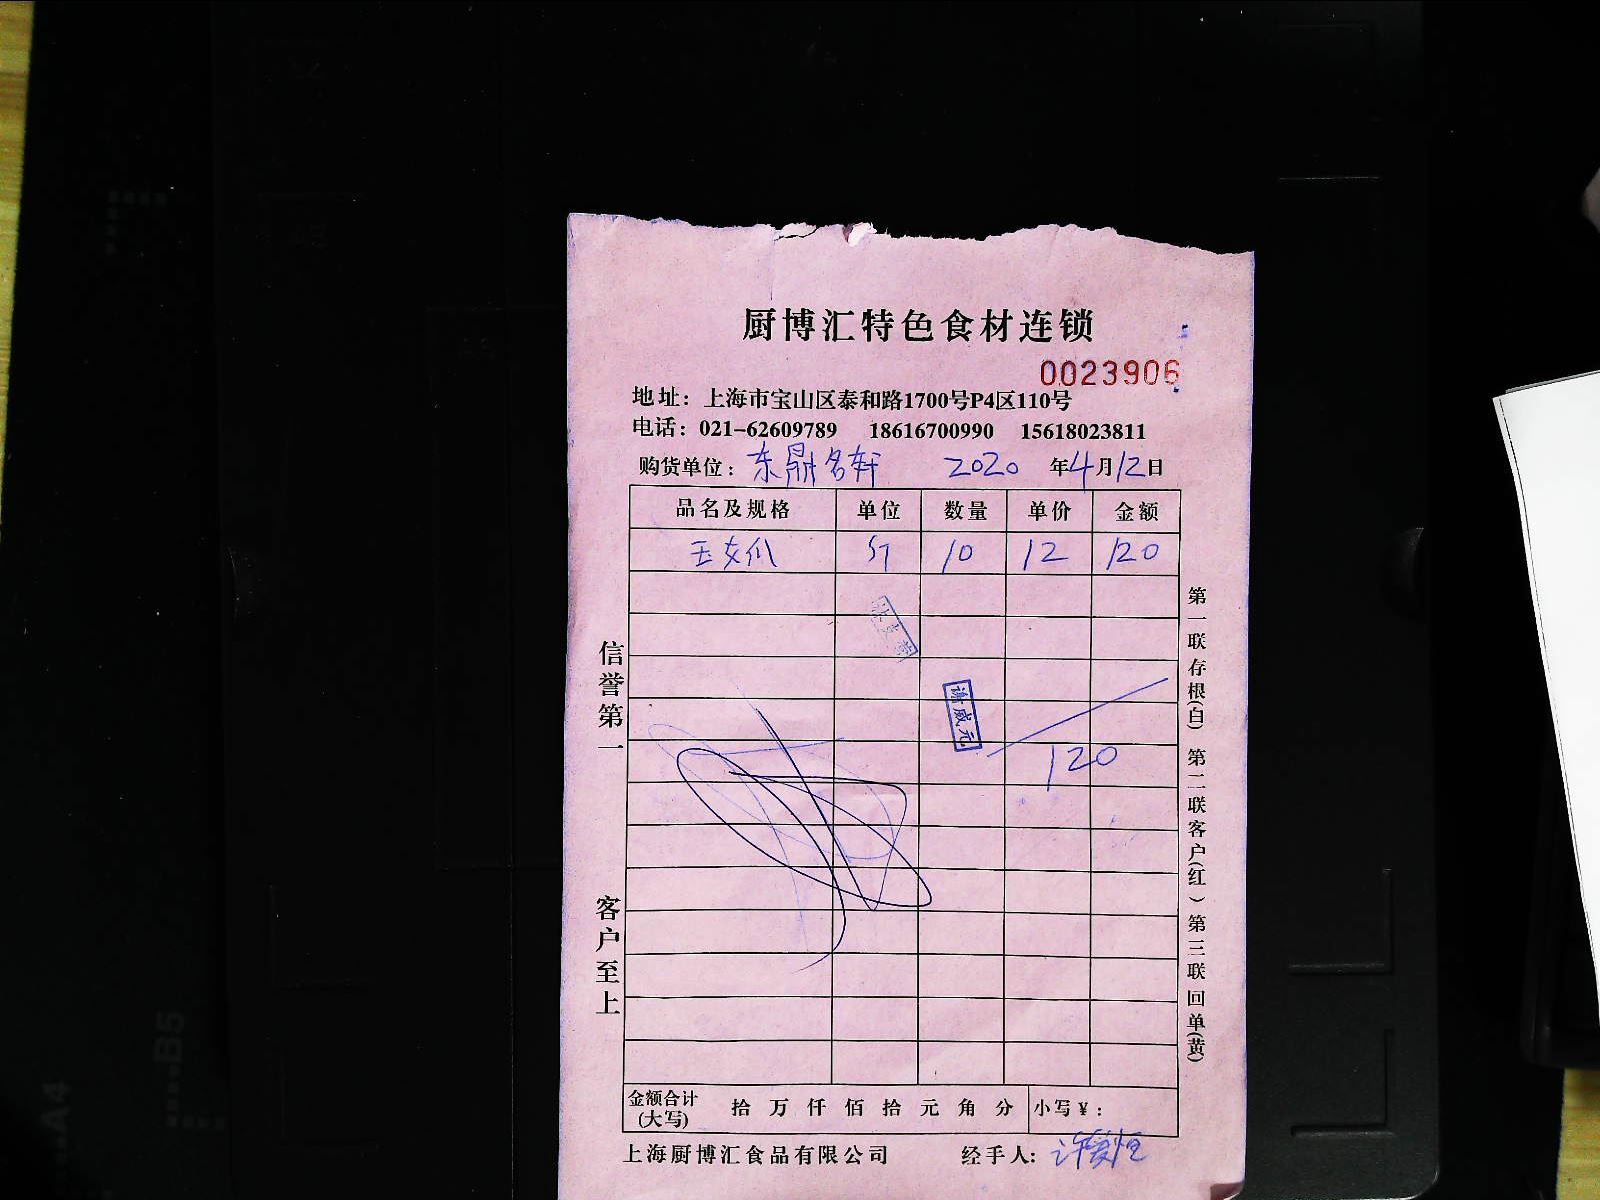 厨博汇特色食材连锁
0023906
地址：上海市宝山区泰和路1700号P4区110号
电话：021-62609789 18616700990 15618023811
购货单位：东鼎名轩 2020 年4月12日
品名及规格 单位 数量 单价 金额
玉女瓜 斤 10 12 120
谢威元
120
信誉第一
客户至上
第一联存根(白) 第二联客户(红) 第三联回单(黄)
金额合计(大写) 拾 万 仟 佰 拾 元 角 分 小写￥：
上海厨博汇食品有限公司 经手人：
B5
A4